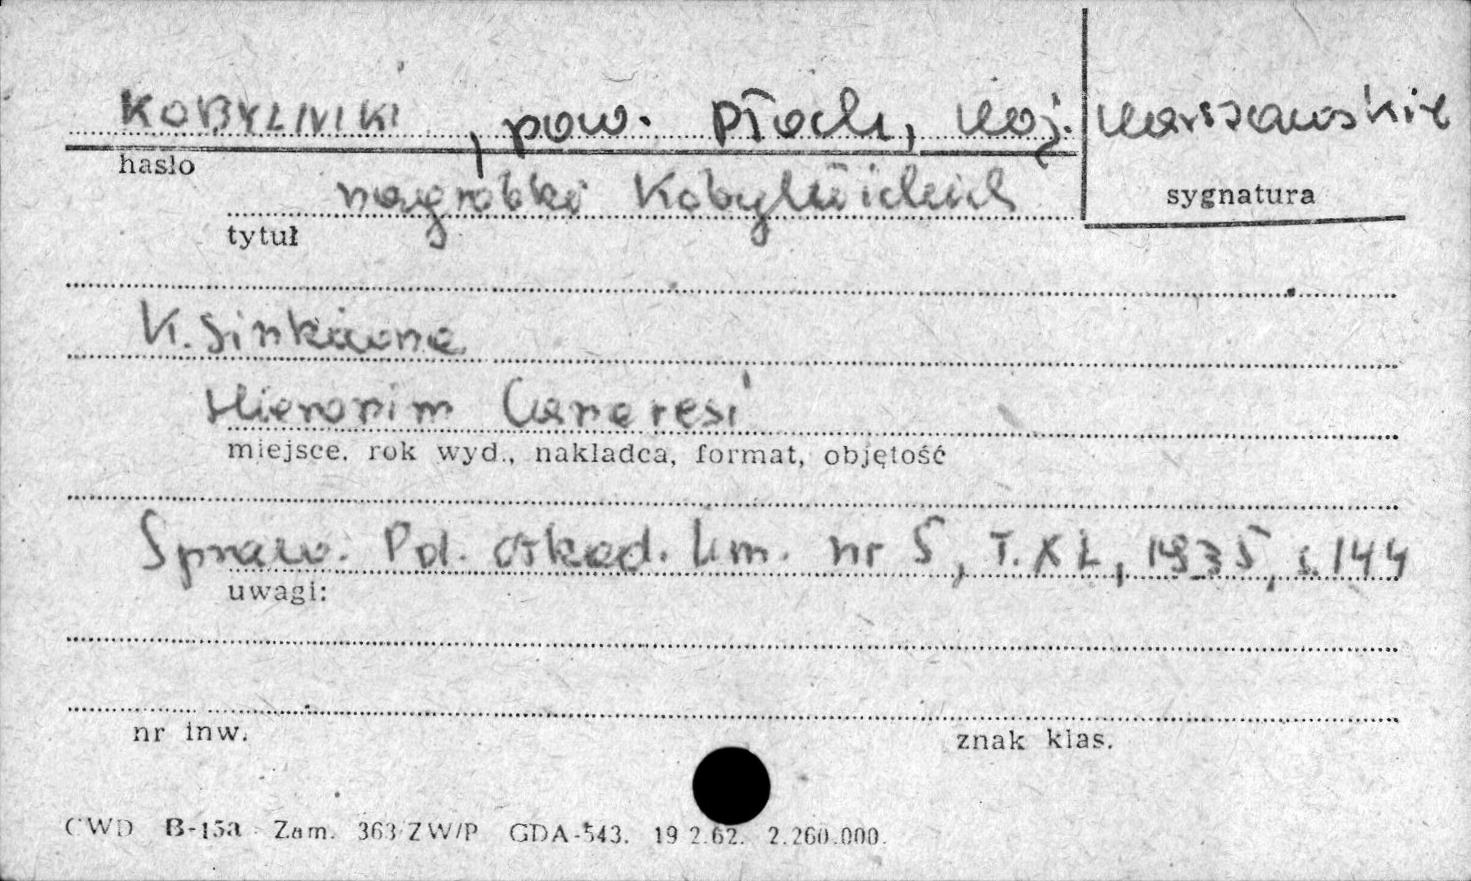 KOBYLNIKI, pow. Płock, woj. warszawskie
hasło
sygnatura
nagrobki Kobylnickich
tytuł
K. Sinkówna
Hieronim Canaresi
miejsce, rok wyd., nakładca, format, objętość
Spraw. Pol. Akad. Um. nr 5, T. XL, 1935, s. 144
uwagi:
nr inw.
znak klas.
CWD B-15a Zam. 363/ZW/P GDA-543. 19 2.62. 2.260.000.